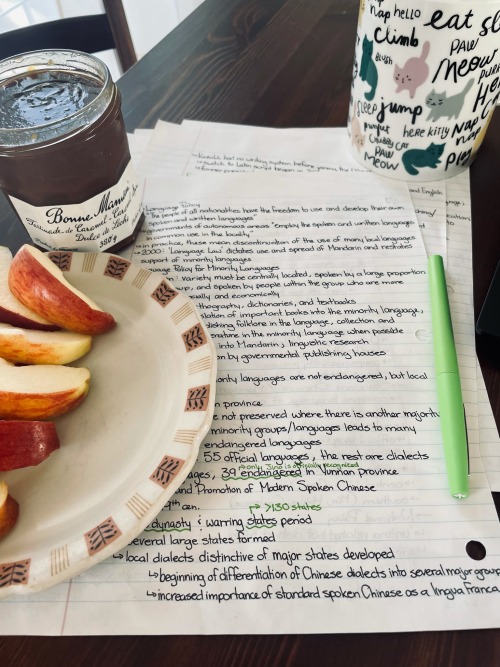 nap hello eat
climb
PAW
Meow
sleep jump
purrfect here kitty Nap
Chubby CAT
PAW
Meow
Bonne Maman
Tartinade de Caramel - Caramel
Dulce de Leche
380 g
had no writing system before
Language Policy
"The people of all nationalities have the freedom to use and develop their
own spoken and written languages"
governments of autonomous areas "employ the spoken and written
in common use in the locality"
in practice, these mean discontinuation of the use of many local languages
2000: "Language Law" dictates use and spread of Mandarin and restricts
support of minority languages
Policy for Minority Languages
: variety must be centrally located, spoken by a large proportion
up, and spoken by people within the group who are more
ually and economically
thography, dictionaries, and textbooks
lation of important books into the minority language,
lishing folklore in the language, collection and
erature in the minority language when possible
into Mandarin, linguistic research
on by governmental publishing houses
ority languages are not endangered, but local
n province
re not preserved where there is another majority
minority groups/languages leads to many
endangered languages
55 official languages, the rest are dialects
only Jino is officially recognized
ages, 39 endangered in Yunnan province
and Promotion of Modern Spoken Chinese
9th cen. >130 states
dynasty & warring states period
several large states formed
↳ local dialects distinctive of major states developed
↳ beginning of differentiation of Chinese dialects into several major group
↳ increased importance of standard spoken Chinese as a lingua Franca